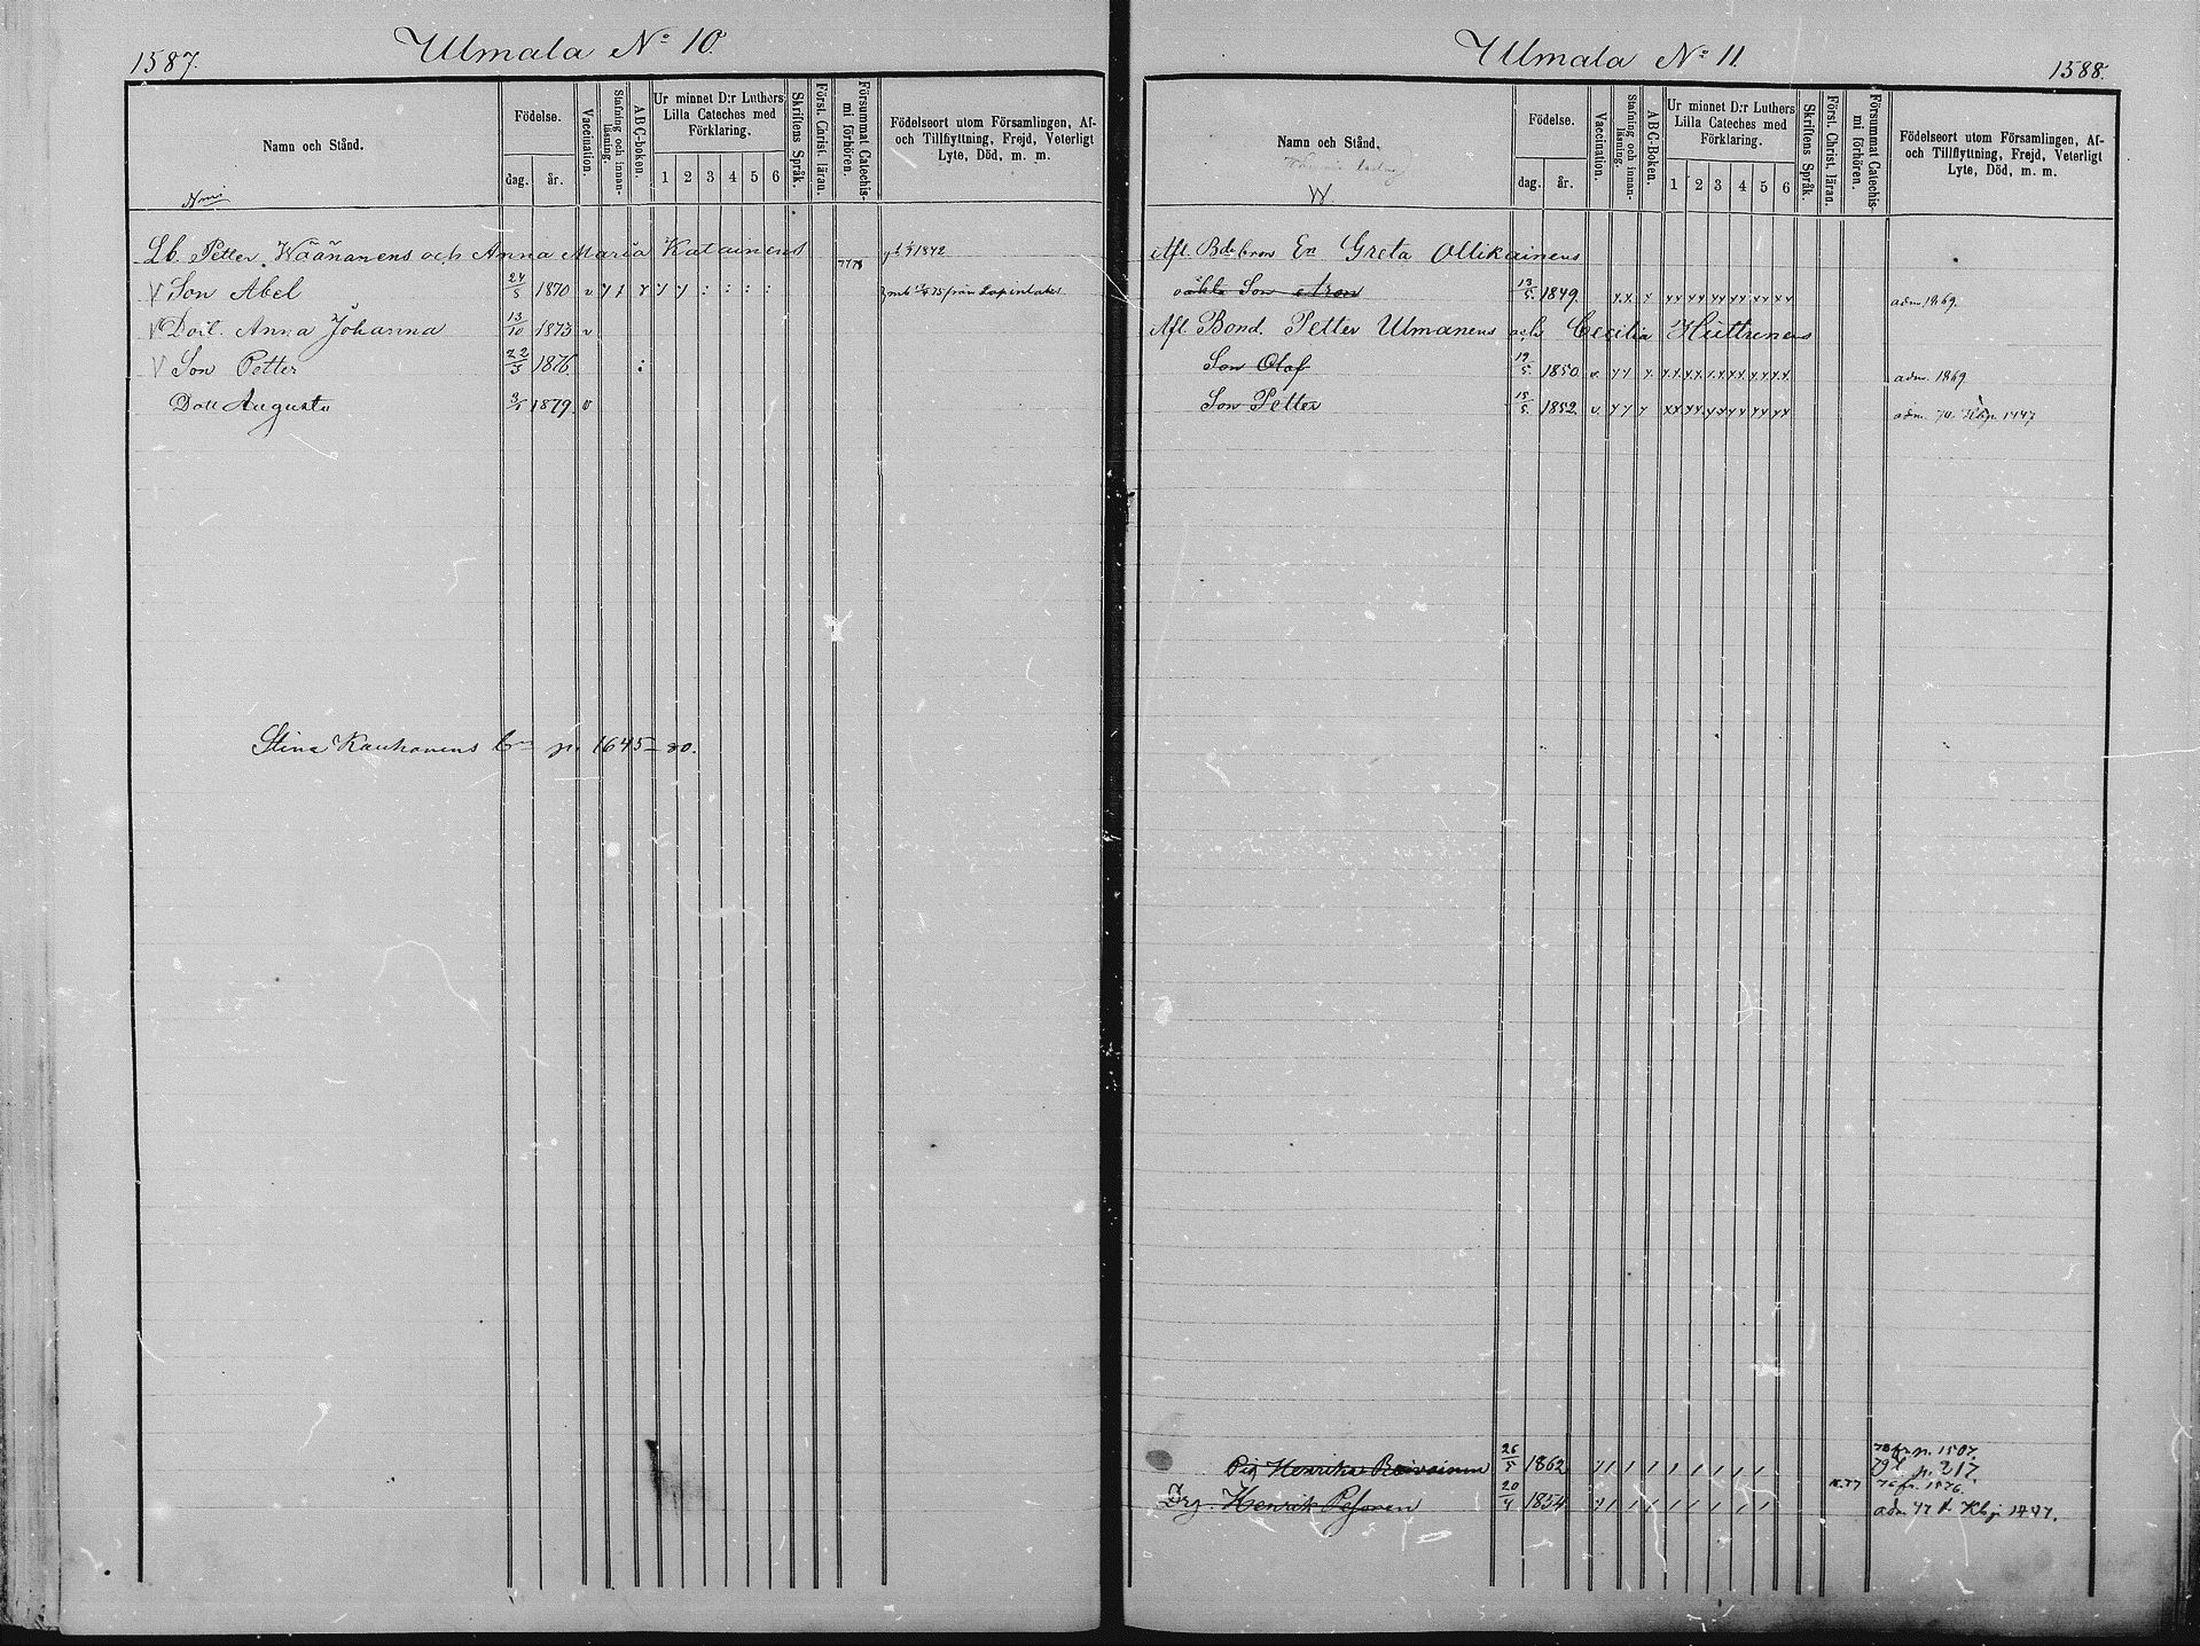 1587.
Ulmala No 10.
Namn och Stånd.
Födelse.
dag.
år.
Vaccination.
Stafning och innan-
läsning.
ABC-boken.
Ur minnet D:r Luthers
Lilla Cateches med
Förklaring.
1 2 3 4 5 6
Skriftens Språk.
Först. Christ. läran.
Försummat Catechis-
mi förhören.
Födelseort utom Församlingen, Af-
och Tillflyttning, Frejd, Veterligt
Lyte, Död, m. m.
Lb. Petter Wäänänens och Anna Maria Katainens
V Son Abel 24/5 1870 v från Lapinlaks
V Dott. Anna Johanna 13/10 1873 v
V Son Petter 22/3 1876
Dott Augusta 1879 v
Stina Kauhanens p. 1645 – 80.
Ulmala No 11.
1588.
Namn och Stånd.
W.
Födelse.
dag.
år.
Vaccination.
Stafning och innan-
läsning.
ABC-Boken.
Ur minnet D:r Luthers
Lilla Cateches med
Förklaring.
1 2 3 4 5 6
Skriftens Språk.
Först. Christ. läran.
Försummat Catechis-
mi förhören.
Födelseort utom Församlingen, Af-
och Tillflyttning, Frejd, Veterligt
Lyte, Död, m. m.
Afl. Greta Ollikainens
oäkta Son Aron 13/5. 1849. adm. 1869.
Afl. Bond. Petter Ulmanens och Cecilia Huttunens
Son Olof 19/5. 1850 v. adm. 1869
Son Petter 15/5. 1852 v. adm. 74.
78 fr. p. 1507
Pig Henrika Roivainen 26/5 1862 79 t. p. 217.
76 fr. 1576.
Drg. Henrik Pesonen 20/4 1854 adm 77